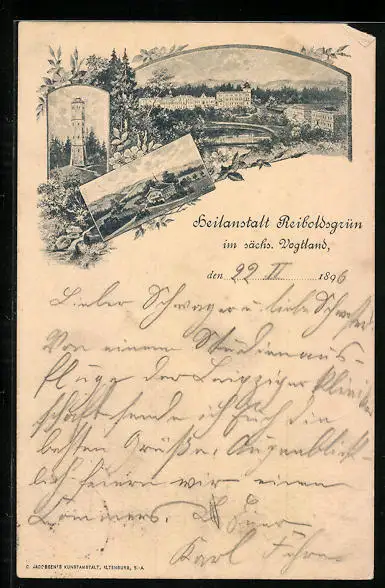 Heilanstalt Reiboldsgrün
im sächs. Vogtland,
den 22 II 1896
Lieber Schwager u. liebe Schwester
Von einem Studienaus-
fluge der Leipziger Klinik
schaft sende ich Euch die
besten Grüße. Augenblick-
lich feiern wir einen
Commers. Euer
Karl
C. JACOBSEN'S KUNSTANSTALT, ALTENBURG, S.-A.